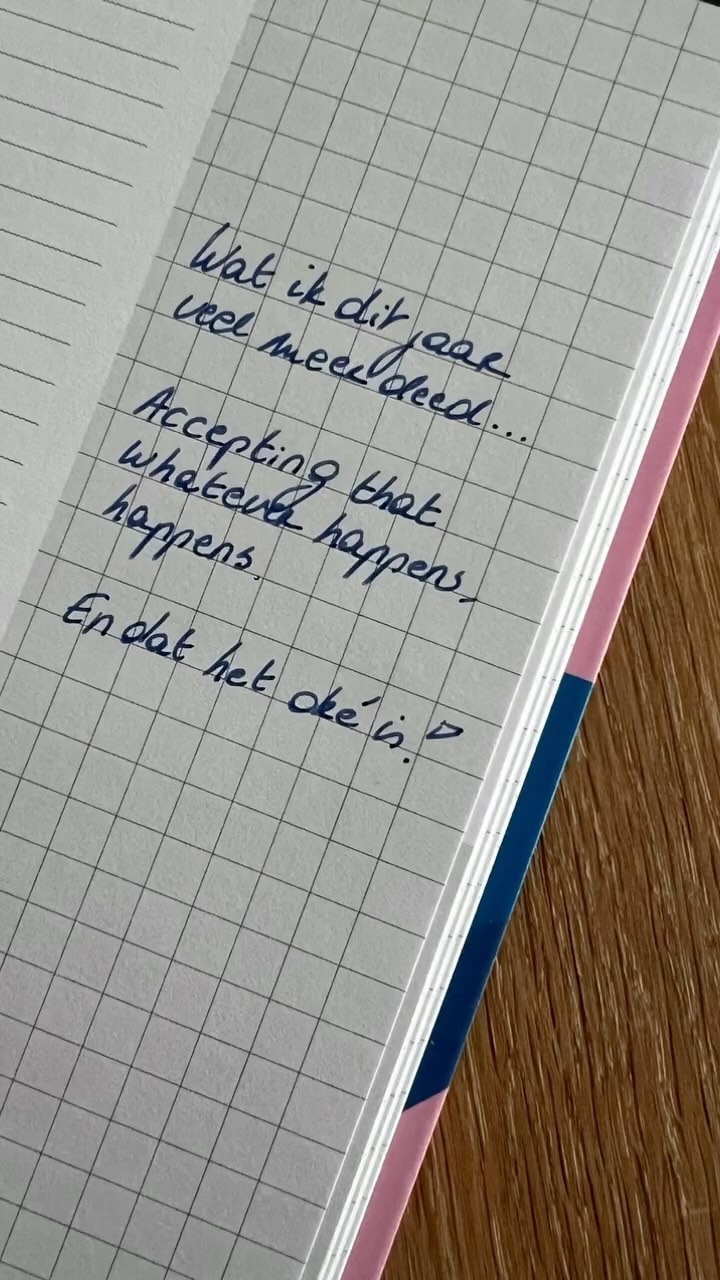 Wat ik dit jaar
veel meer deed...
Accepting that
whatever happens,
happens.
En dat het oké is.